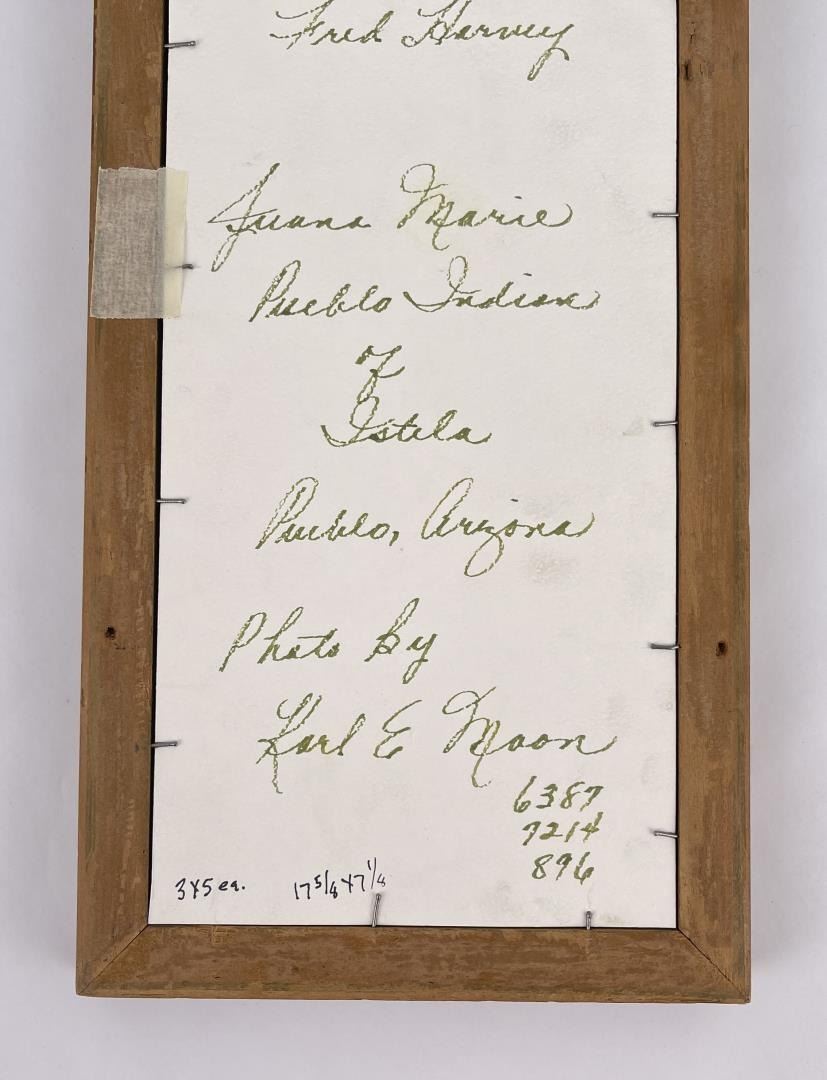 Fred Harvey
Juana Marie
Pueblo Indian
of
Istela
Pueblo, Arizona
Photo by
Karl E Moon
6387
7214
896
3x5 ea. 17 5/8 x 7 1/4